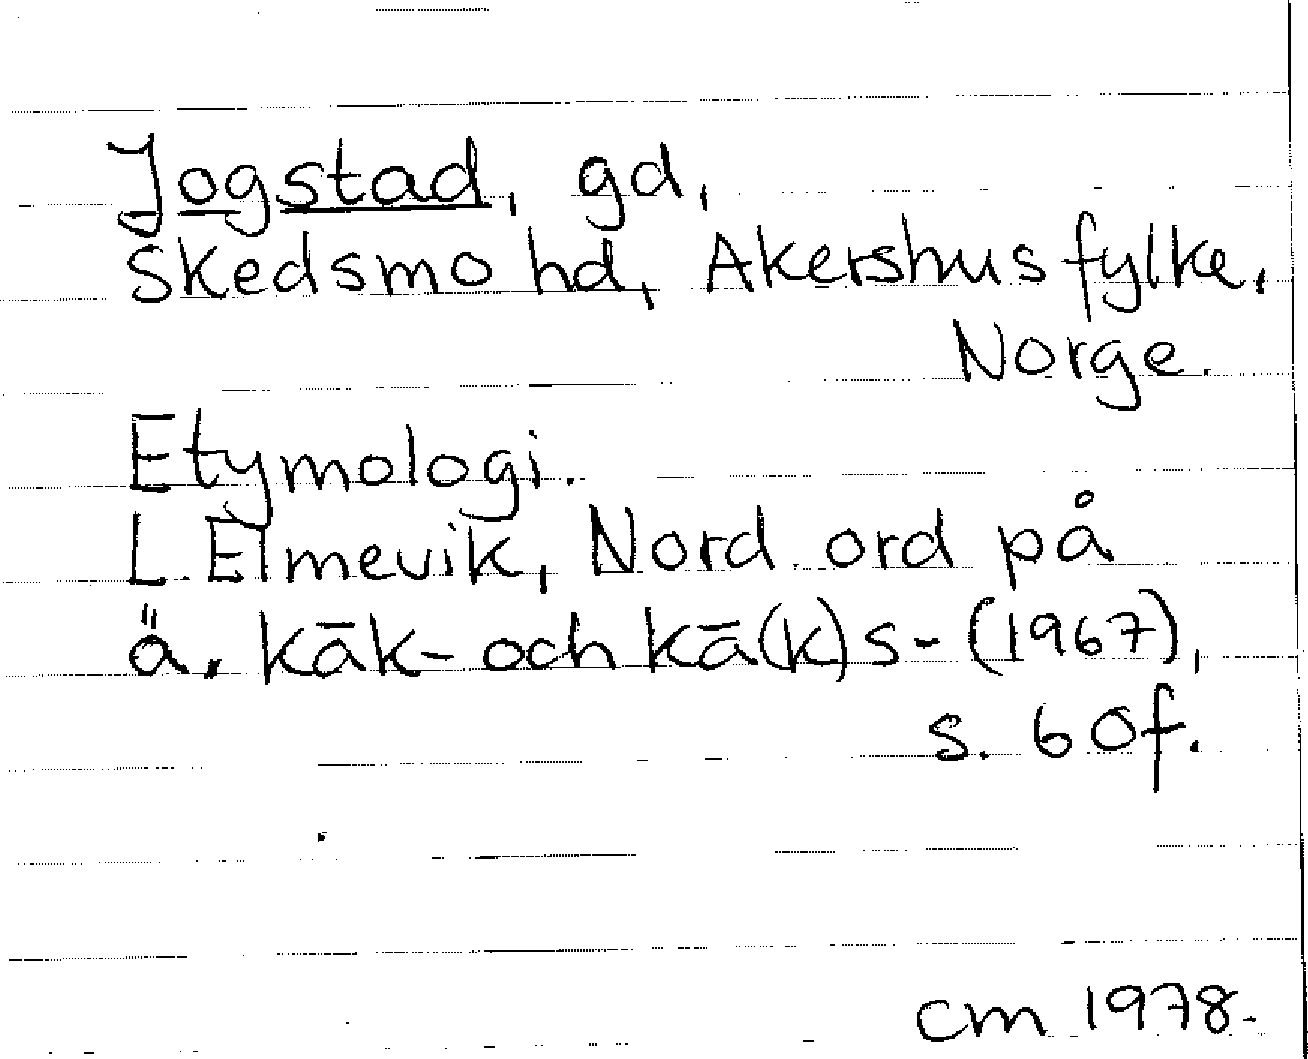 Jogstad, gd,
Skedsmo hd, Akershus fylke,
Norge.
Etymologi.
L. Elmevik, Nord. ord på
ä. kāk- och kā(k)s- (1967),
s. 60f.
cm 1978.